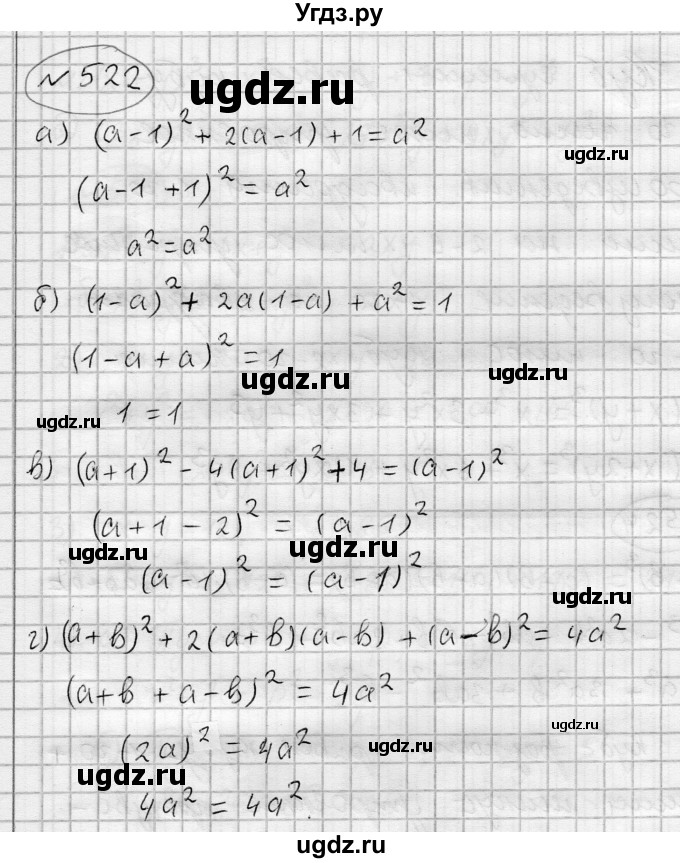 Угдз.ру
№522
ugdz.ru
а) (a-1)² + 2(a-1) + 1 = a²
ugdz.ru
(a-1+1)² = a²
a² = a²
б) (1-a)² + 2a(1-a) + a² = 1
(1-a+a)² = 1
ugdz.ru
ugdz.ru
ugdz.ru
1 = 1
в) (a+1)² - 4(a+1)² + 4 = (a-1)²
(a+1-2)² = (a-1)²
ugdz.ru
ugdz.ru
(a-1)² = (a-1)²
ugdz.ru
г) (a+b)² + 2(a+b)(a-b) + (a-b)² = 4a²
(a+b+a-b)² = 4a²
(2a)² = 4a²
ugdz.ru
ugdz.ru
4a² = 4a².
ugdz.ru
ugdz.ru